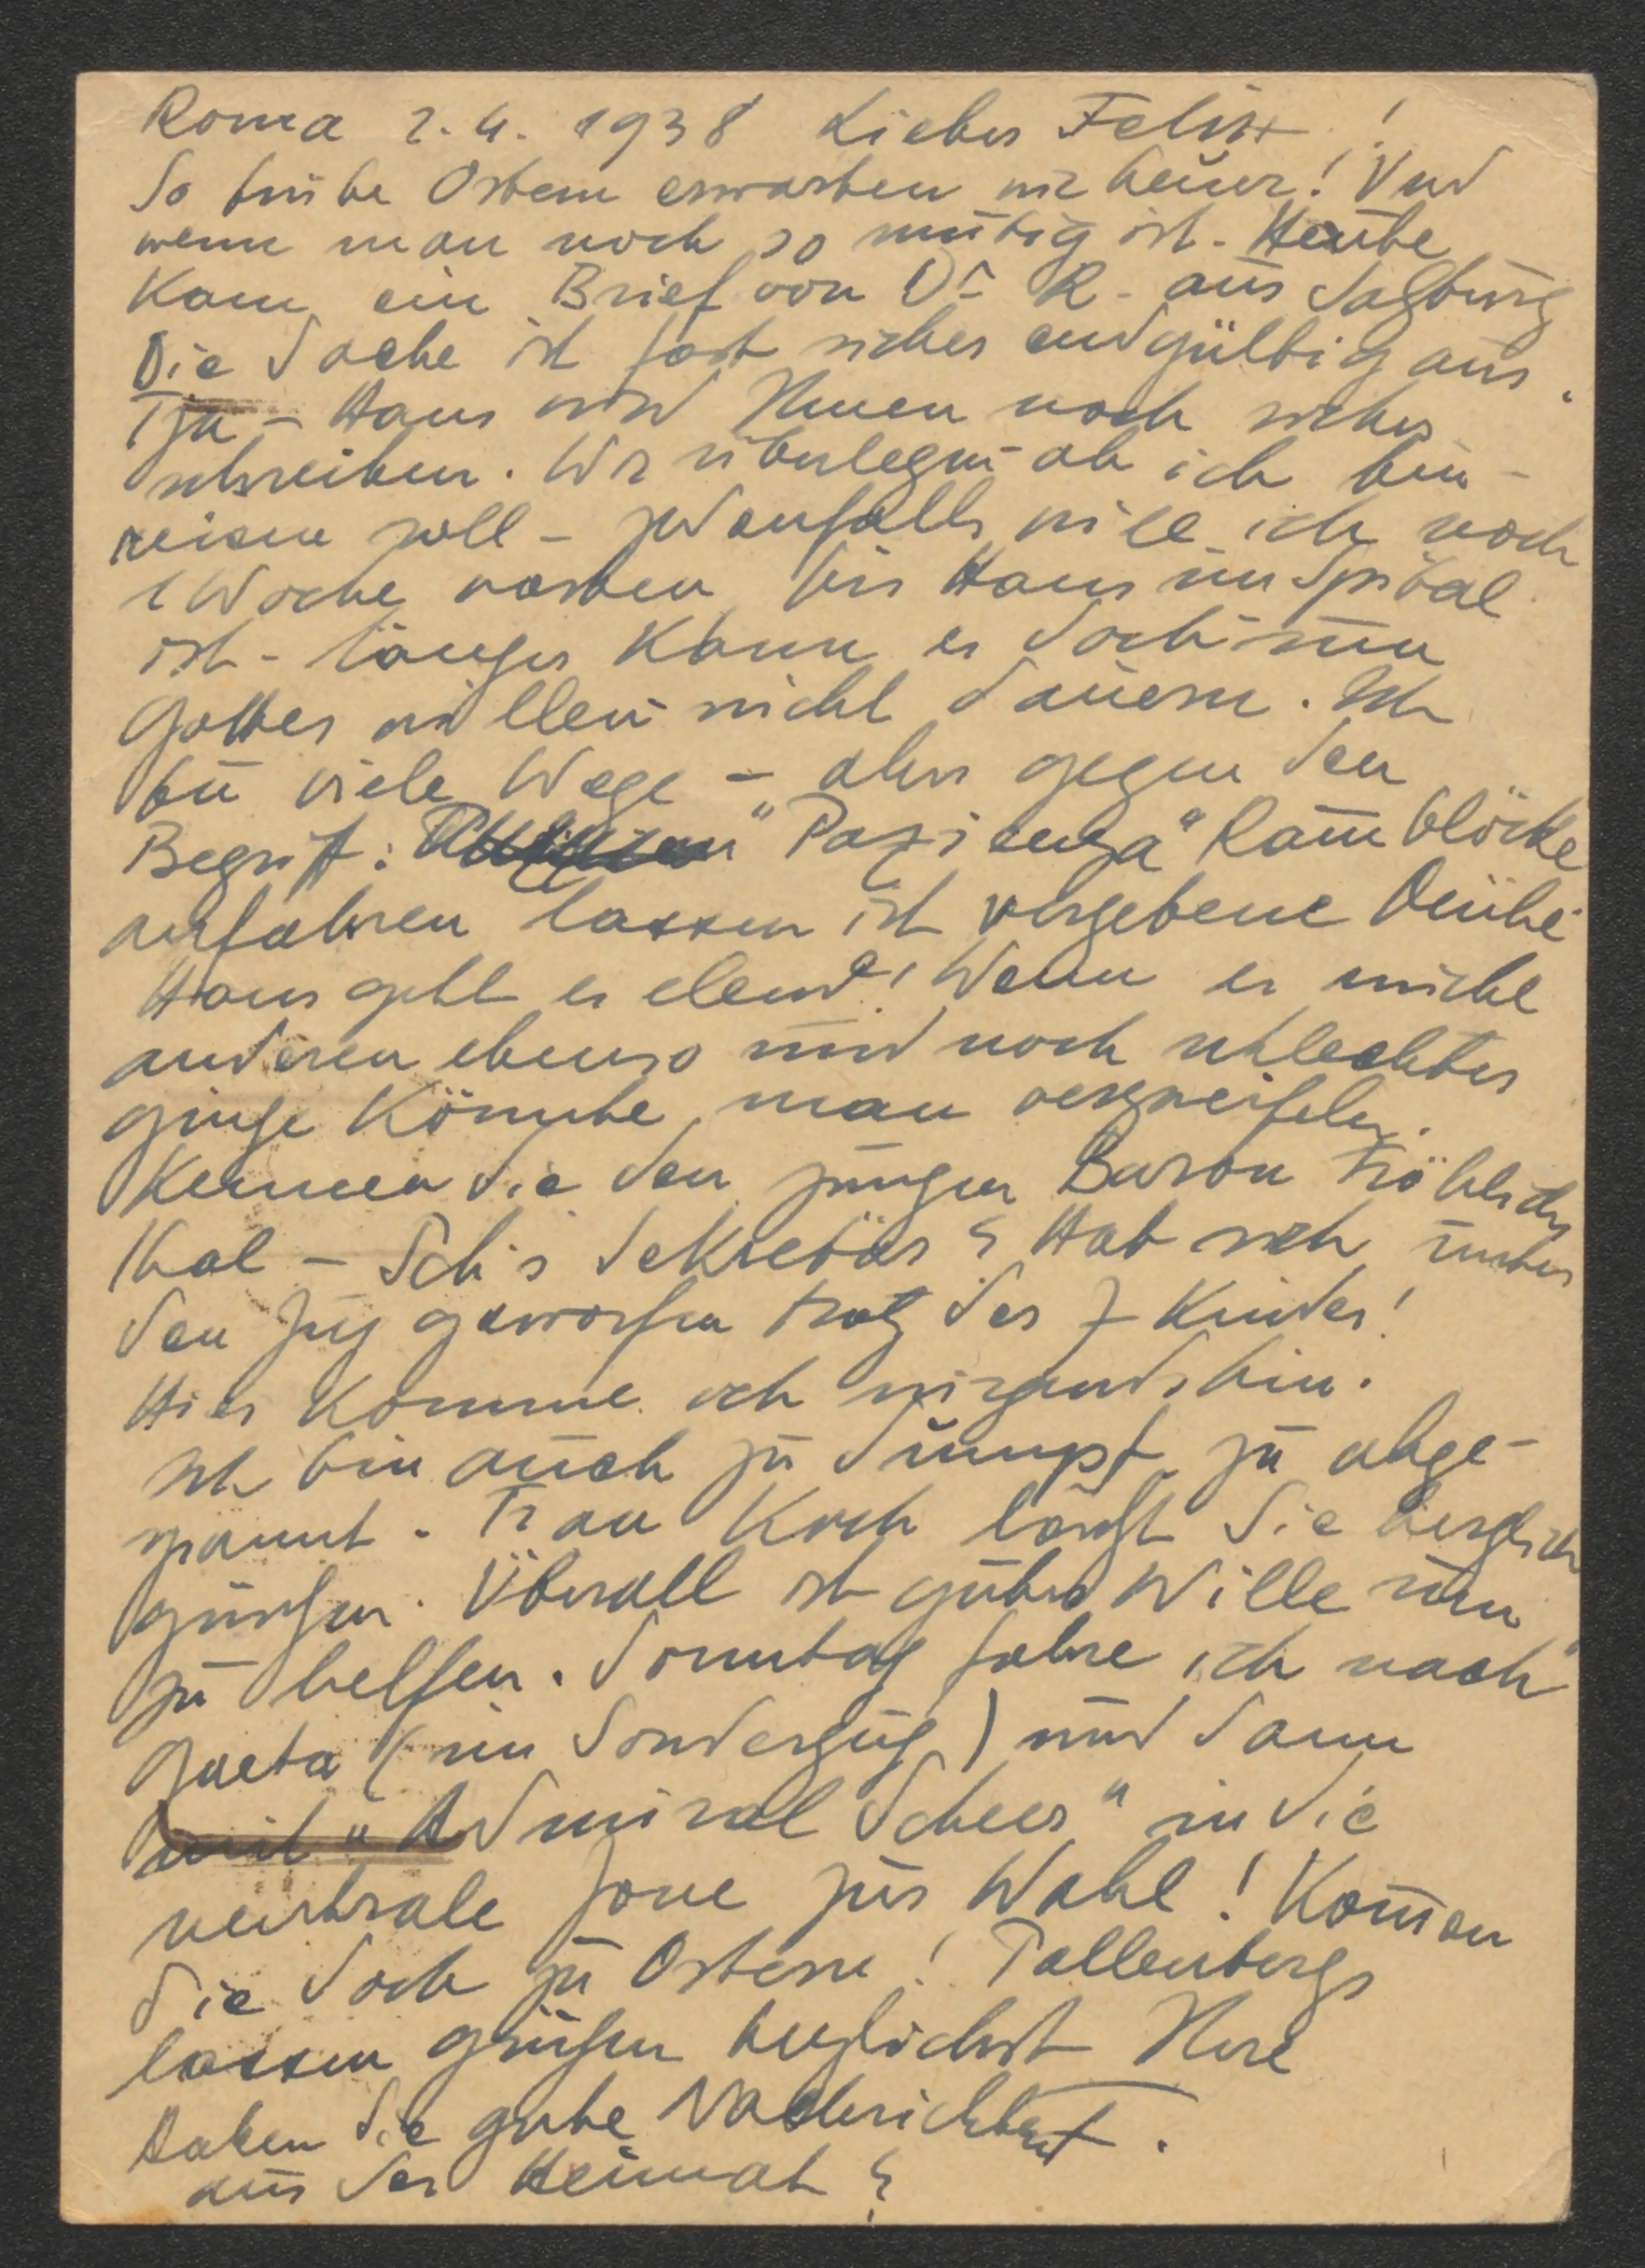 Roma 2.4. 1938 Lieber Felix!
So trübe Ostern erwarten wir heuer! Und
wenn man noch so mutig ist. Heute
kam ein Brief von Dr R. aus Salzburg
Die Sache ist fast sicher endgültig aus.
Tja – Hans wird Ihnen noch sicher
schreiben. Wir überlegen ob ich hin-
reisen soll – jedenfalls will ich noch
1 Woche warten bis Hans im Spital
ist – länger kann es doch um
Gottes willen nicht dauern. Ich
tu viele Wege – aber gegen den
Begriff: "Pazienza" Rammblöcke
anfahren lassen ist vergebene Mühe
Hans geht es elend! Wenn es nicht
anderen ebenso und noch schlechter
ginge könnte man verzweifeln.
Kennen Sie den jungen Baron Fröhlichs
thal – Sch's Sekretär? Hat sich unter
den Zug geworfen trotz der 7 Kinder!
Hier komme ich nirgends hin.
Ich bin auch zu dumpf zu abge-
spannt. Frau Koch lässt Sie herzlich
grüssen. Überall ist guter Wille um
zu helfen. Sonntag fahre ich nach
Gaeta (im Sonderzug) und dann
mit "Admiral Scheer" in die
neutrale Zone zur Wahl! Kommen
Sie doch zu Ostern! Pallenbergs
lassen grüssen herzlichst Ihre
Haben Sie gute Nachrichten
aus der Heimat?